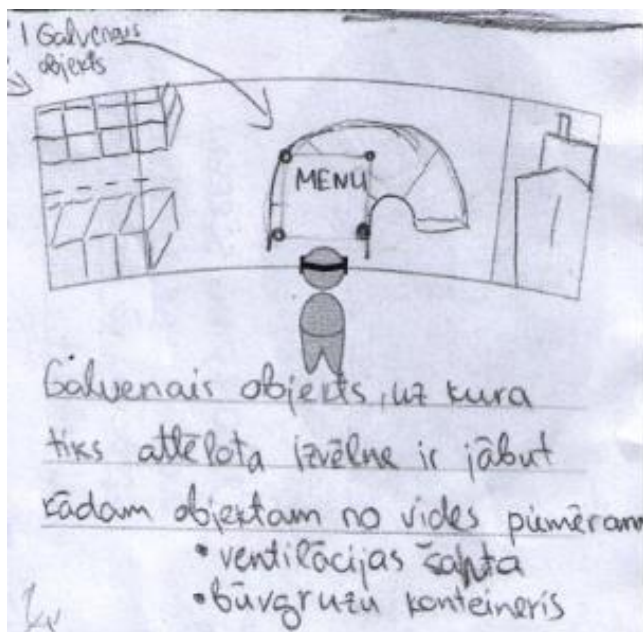 1 Galvenais
objekts
MENU
Galvenais objekts, uz kura
tiks attēlota izvēlne ir jābut
kādam objektam no vides piemēram
• ventilācijas šahta
• būvgružu konteineris